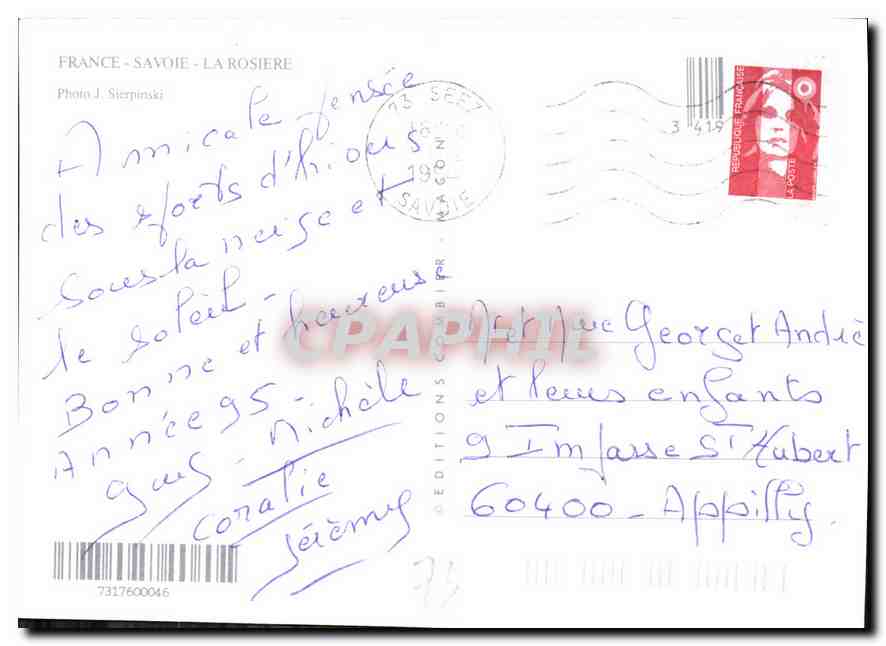 FRANCE - SAVOIE - LA ROSIERE
Photo J. Sierpinski
Amicale pensée
des sports d'hivers
sous la neige et
le soleil -
Bonne et heureuse
Année 95 -
Guy - Michèle
Coralie
Jérémy
7317600046
73 SEEZ
SAVOIE
3 419
REPUBLIQUE FRANÇAISE
LA POSTE
EDITIONS COMBIER - MACON
CPAPHIL
Mr et Mme Georget André
et leurs enfants
9 Impasse St Hubert
60400 - Appilly.
73